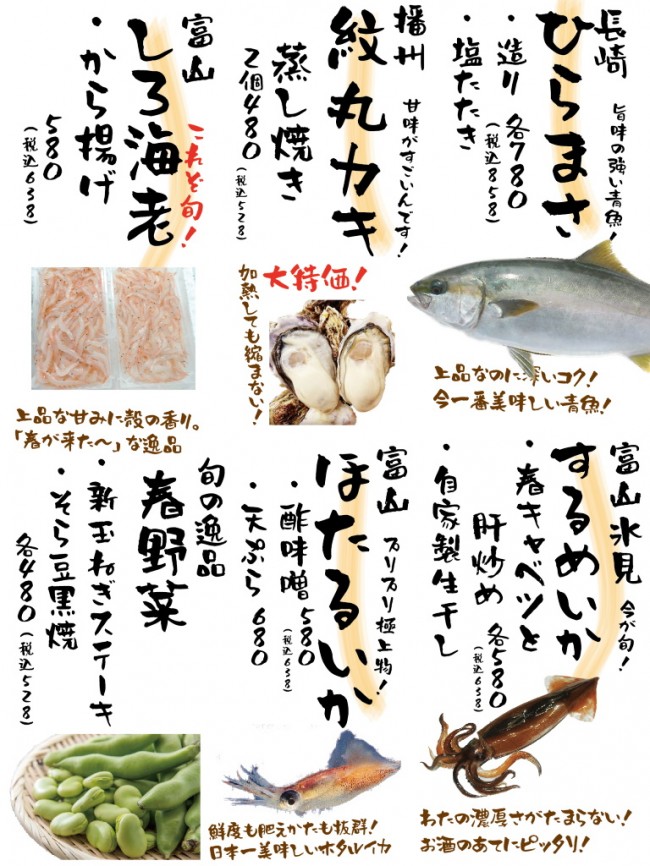 長崎
旨味の強い青魚！
ひらまさ
・造り
・塩たたき
各780
（税込858）
上品なのに深いコク！
今一番美味しい青魚！
播州
甘味がすごいんです！
紋丸カキ
蒸し焼き
2個480
（税込528）
大特価！
加熱しても縮まない！
富山
これぞ旬！
しろ海老
・から揚げ
580
（税込638）
上品な甘みに殻の香り。
「春が来た〜」な逸品
富山氷見
今が旬！
するめいか
・春キャベツと
肝炒め
・自家製生干し
各580
（税込638）
わたの濃厚さがたまらない！
お酒のあてにピッタリ！
富山
プリプリ極上物！
ほたるいか
・酢味噌 580
（税込638）
・天ぷら 680
鮮度も肥えかたも抜群！
日本一美味しいホタルイカ
旬の逸品
春野菜
・新玉ねぎステーキ
・そら豆黒焼
各480（税込528）